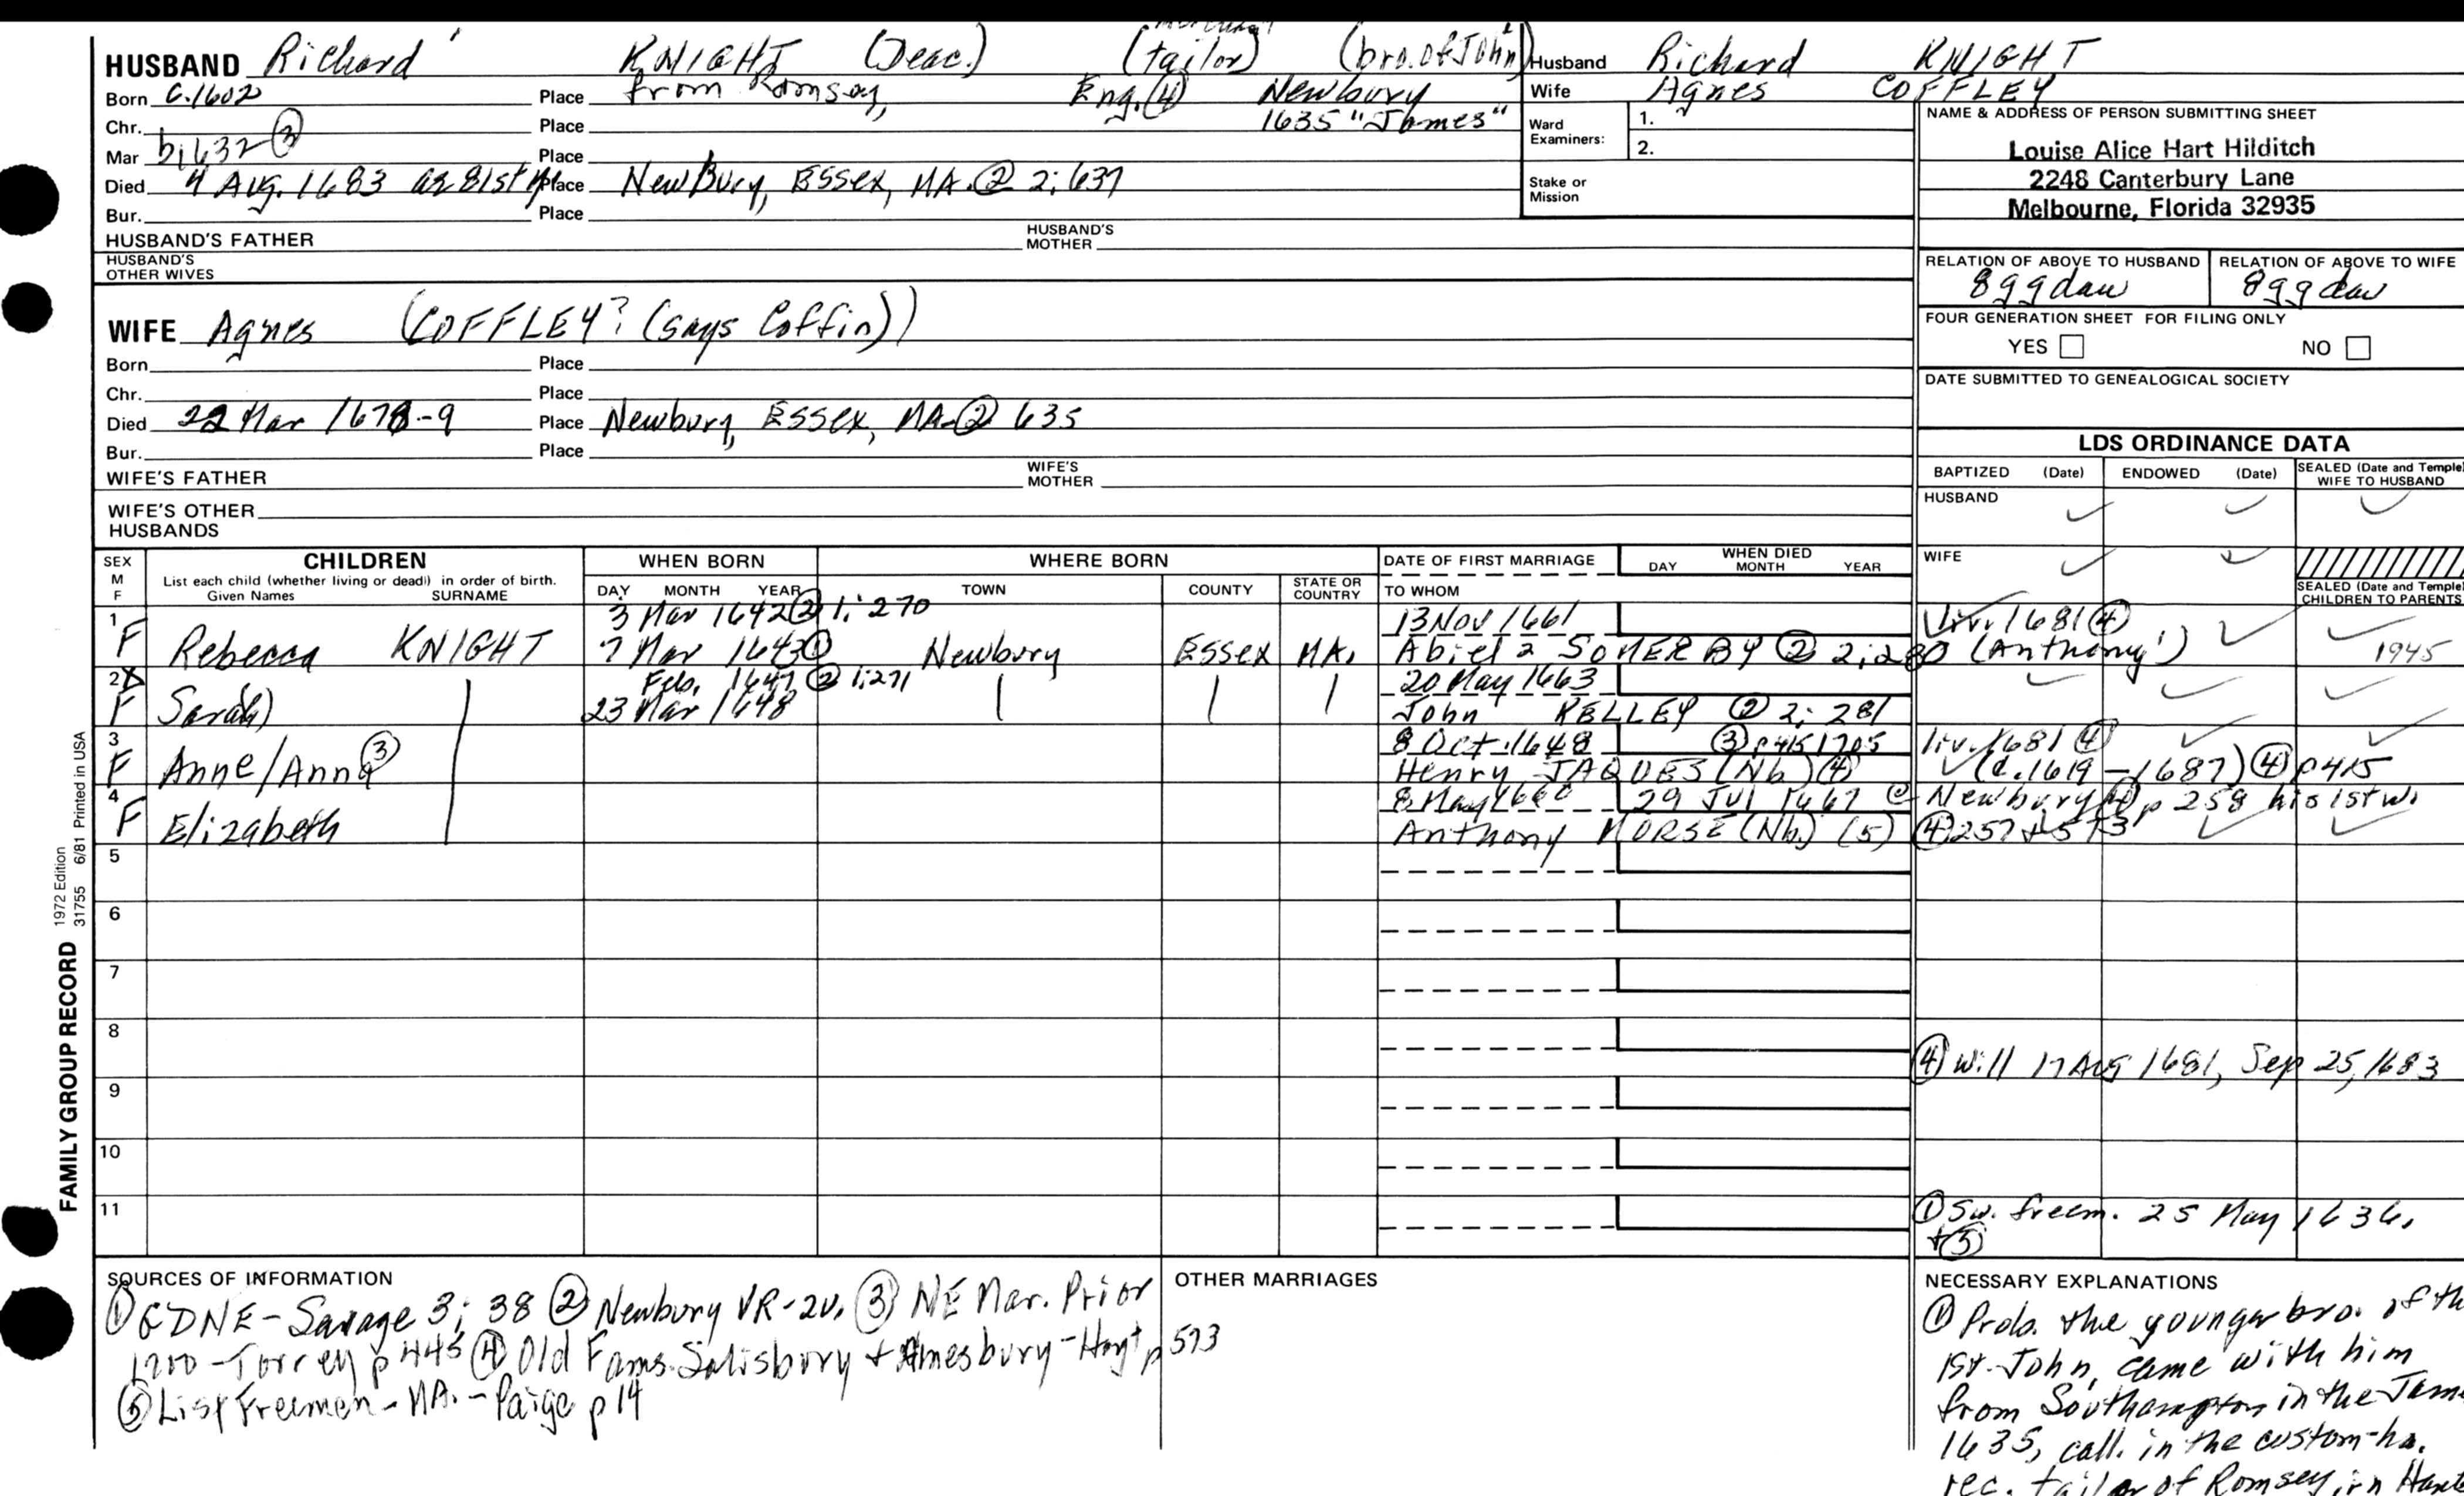 HUSBAND Richard KNIGHT (Deac.) (tailor) (bro. of John)
Husband Richard KNIGHT
Born c.1602 Place from Romsay, Eng. (4) Newbury
Wife Agnes COFFLEY
Chr. Place 1635 "James"
Ward Examiners: 1. 2.
Mar b1632 (3) Place
Died 4 Aug. 1683 as 81st yr Place NewBury, Essex, MA. (2) 2:637
Bur. Place
Stake or Mission
NAME & ADDRESS OF PERSON SUBMITTING SHEET
Louise Alice Hart Hilditch
2248 Canterbury Lane
Melbourne, Florida 32935
HUSBAND'S FATHER HUSBAND'S MOTHER
HUSBAND'S OTHER WIVES
RELATION OF ABOVE TO HUSBAND RELATION OF ABOVE TO WIFE
8ggdau 8ggdau
WIFE Agnes (COFFLEY? (says Coffin))
FOUR GENERATION SHEET FOR FILING ONLY
YES NO
Born Place
Chr. Place
DATE SUBMITTED TO GENEALOGICAL SOCIETY
Died 22 Mar 1678-9 Place Newbury, Essex, MA. (2) 635
Bur. Place
WIFE'S FATHER WIFE'S MOTHER
WIFE'S OTHER HUSBANDS
LDS ORDINANCE DATA
BAPTIZED (Date) ENDOWED (Date) SEALED (Date and Temple) WIFE TO HUSBAND
HUSBAND
WIFE
SEALED (Date and Temple) CHILDREN TO PARENTS
SEX M F CHILDREN WHEN BORN WHERE BORN DATE OF FIRST MARRIAGE WHEN DIED
List each child (whether living or dead) in order of birth.
Given Names SURNAME DAY MONTH YEAR TOWN COUNTY STATE OR COUNTRY TO WHOM DAY MONTH YEAR
1 3 Mar 1642 (2) 1:270 13 Nov 1661 liv. 1681 (4)
F Rebecca KNIGHT 7 Mar 1643 (1) Newbury Essex MA. Abiel 2 SOMERBY (2) 2:280 (Anthony1) 1945
2 Feb. 1647 (2) 1:271 20 May 1663
F Sara(h) 23 Mar 1648 John KELLEY (2) 2:281
3 8 Oct. 1648 (3) p415 1705 liv. 1681 (4)
F Anne/Anna (3) Henry JAQUES (Nb.) (4) (c.1619-1687) (4) p415
4 8 May 1660 29 Jul 1667 @ Newbury (4) p 258 his 1st w.
F Elizabeth Anthony MORSE (Nb.) (5) (4) 257 + 573
5
6
7
8
(4) Will 17 Aug 1681, Sep 25, 1683
9
10
11
(1) Sw. freem. 25 May 1636.
+ (5)
FAMILY GROUP RECORD 1972 Edition 31755 6/81 Printed in USA
SOURCES OF INFORMATION
(1) GDNE-Savage 3:38 (2) Newbury VR-2v. (3) NE Mar. Prior
1700-Torrey p 445 (4) Old Fams. Salisbury + Amesbury-Hoyt p 573
(5) List Freemen-MA.-Paige p 14
OTHER MARRIAGES
NECESSARY EXPLANATIONS
(1) Prob. the younger bro. of th
1st John, came with him
from Southampton in the Jame
1635, call. in the custom-ho.
rec. tailor of Romsey, in Hant